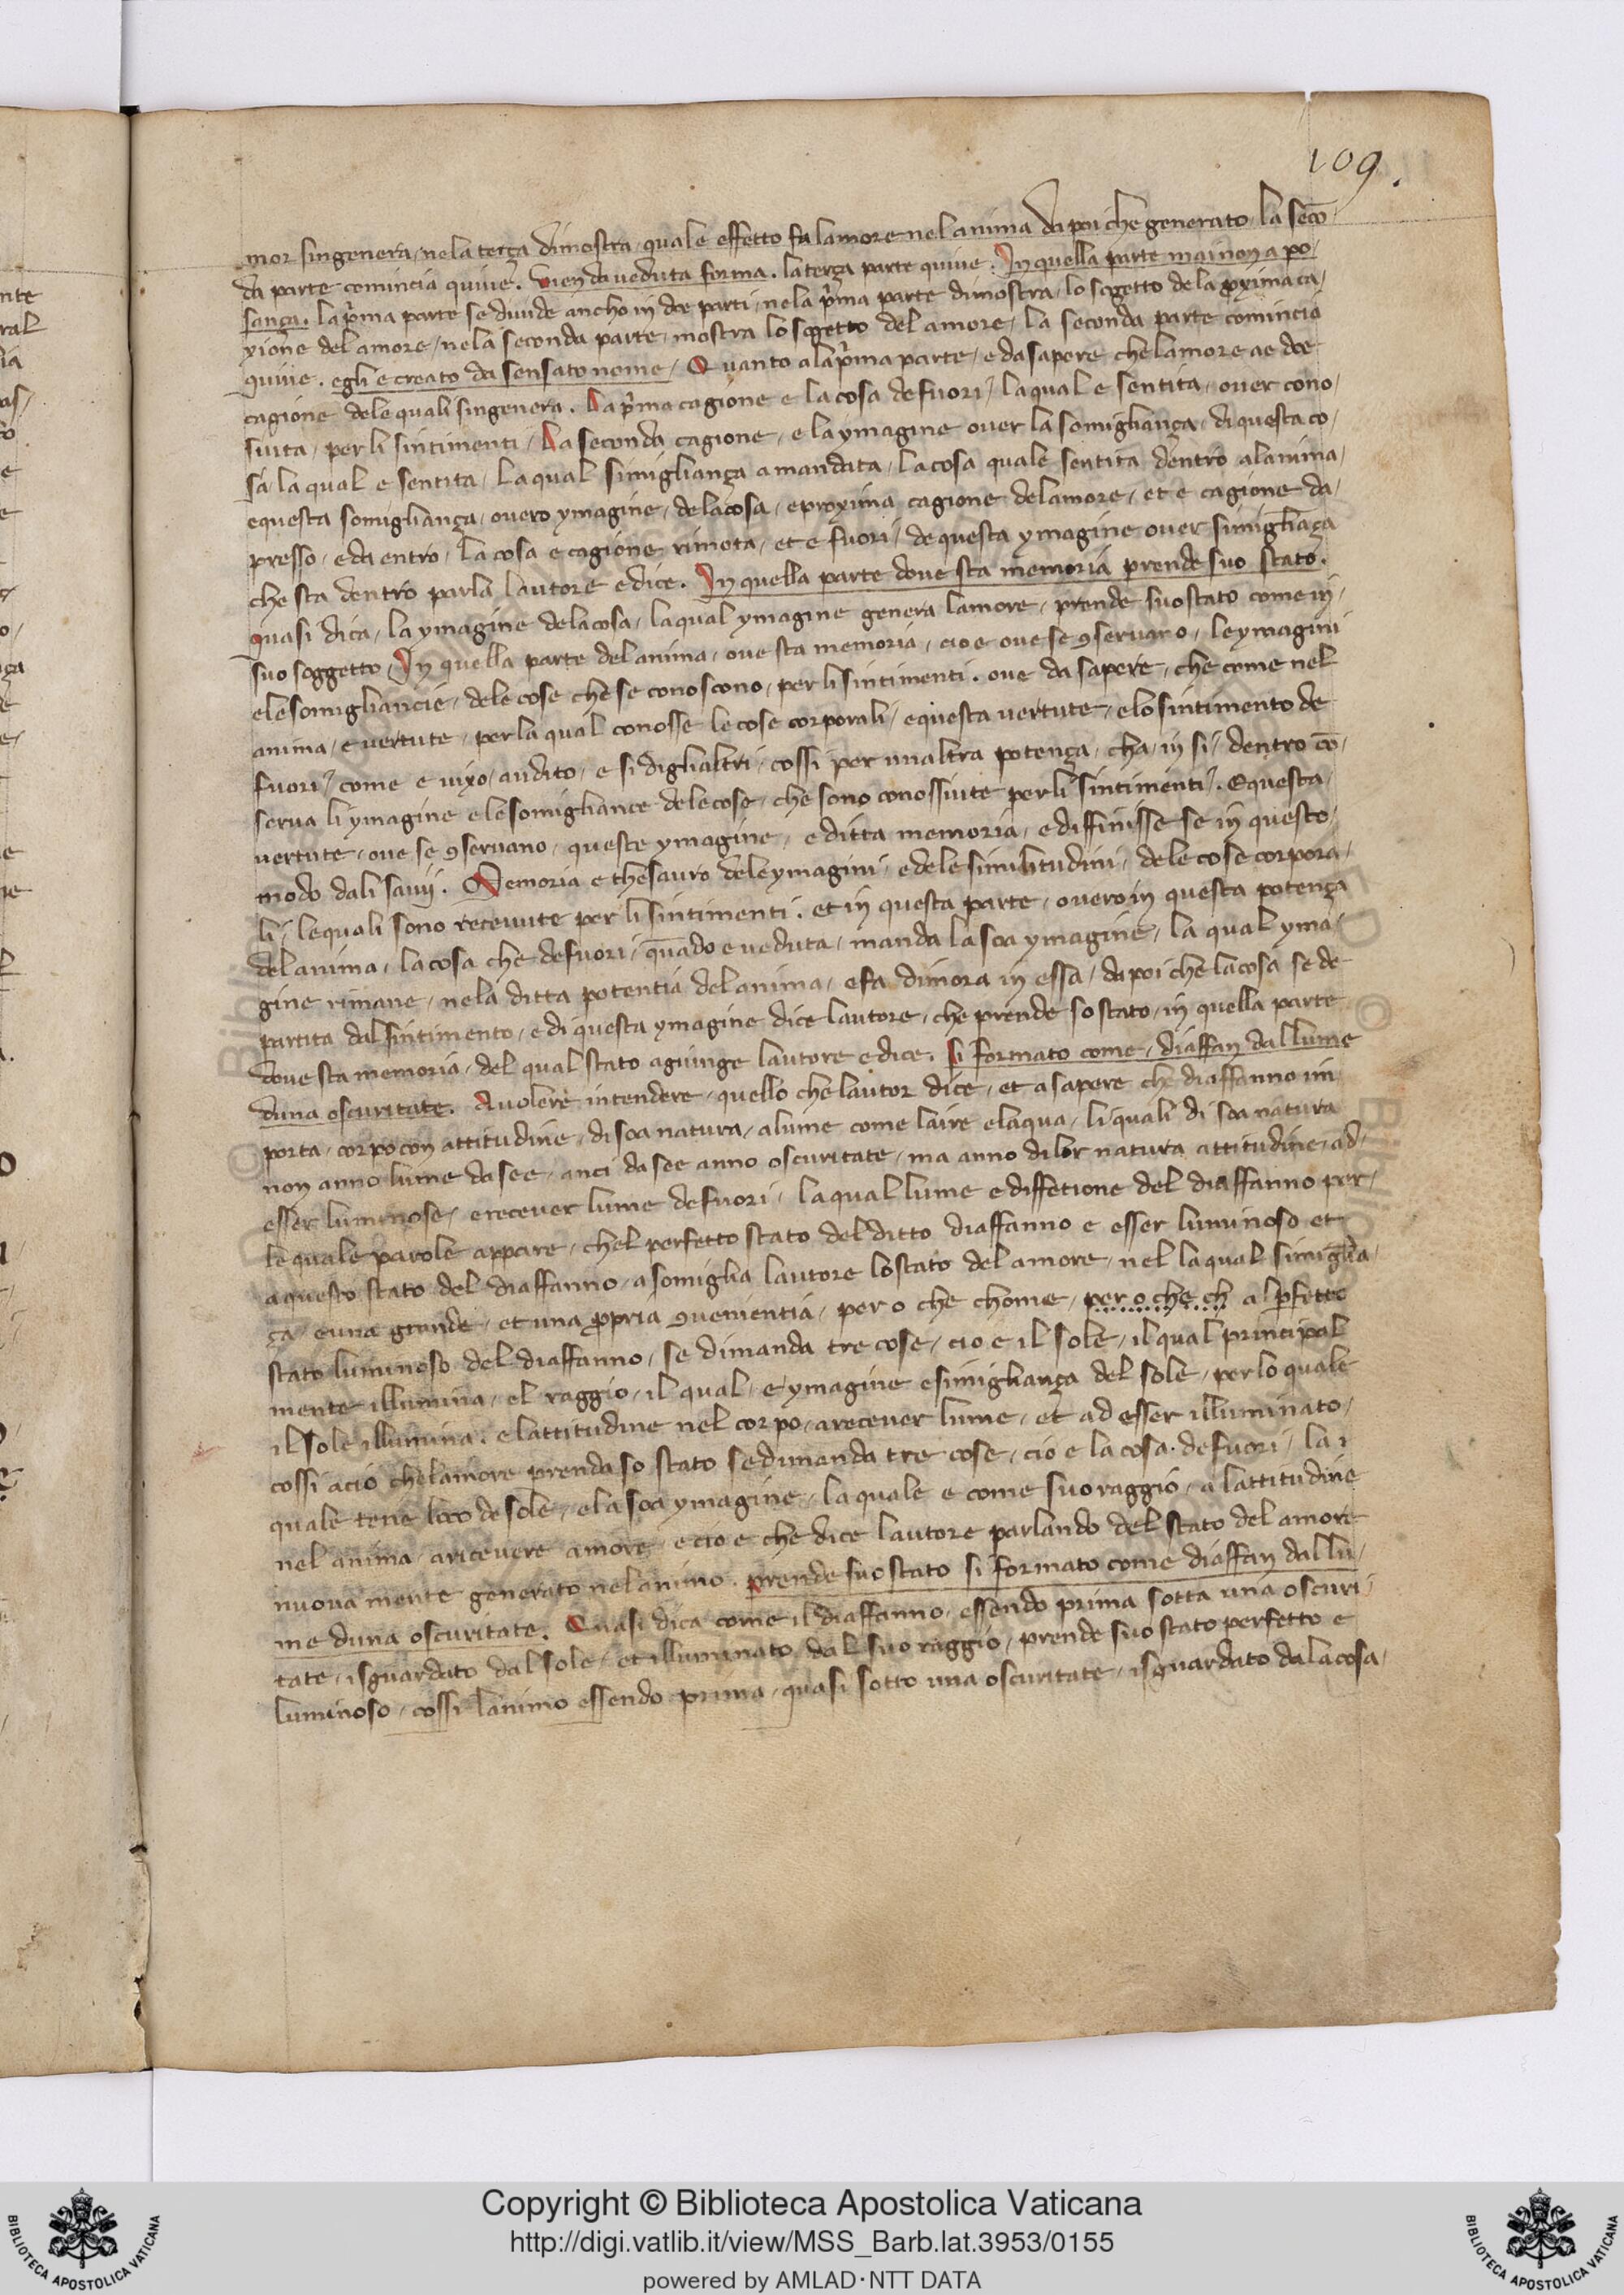 109.
mor singenera / nela terça dimostra / quale effetto fa lamore nel anima da poi che generato / la secō
da parte comincia quiue. Vien da veduta forma. la terça parte quiue. In quella parte mai non a po
sança. la pͥma parte se diuide ancho in doe parti / nela pͥma parte dimostra / lo sogetto dela ꝓxima ca
xione del amore / nela seconda parte / mostra lo sogetto del amore / la seconda parte comincio
quiue. egli e creato da sensato nome / Quanto ala pͥma parte / e da sapere che lamore ae doe
cagione dele quali singenera. La pͥma cagione e la cosa de fuori / la qual e sentita / ouer cono
siuta / per li sintimenti / La seconda cagione / e la ymagine ouer la somigliança / di questa co
sa / la qual e sentita / la qual simigliança a mandata / la cosa quale sentita dentro al anima /
e questa somigliança / ouero ymagine / dela cosa / e proxima cagione del amore / et e cagione da
presso / e da entro / la cosa e cagione rimota / et e fuori / de questa ymagine ouer simigliāça
che sta dentro parla lautore e dice. In quella parte doue sta memoria prende suo stato.
quasi dica / la ymagine dela cosa / la qual ymagine genera lamore / prende suo stato come in /
suo soggetto / In quella parte del anima / oue sta memoria / cio e oue se ꝯseruano / le ymagini
e le somigliancie / dele cose che se conoscono / per li sintimenti. oue da sapere / che come nel
anima / e vertute / per la qual conosse le cose corporali / e questa vertute / e lo sintimento de
fuori / come e vixo / audito / e si digli altri / cossi per unaltra potença / cha / in si / dentro cō
serua li ymagine e le somigliance dele cose / che sono conossiute per li sintimenti. E questa /
vertute / oue se ꝯseruano / queste ymagine / e ditta memoria / e diffinisse se in questo /
modo dali sauij. Memoria e thesauro dele ymagini / e dele similitudini / dele cose corpora /
li / le quali sono receuute per li sintimenti. et in questa parte / ouero in questa potença
del anima / la cosa che de fuori / quādo e veduta / manda la soa ymagine / la qual yma /
gine rimane / nela ditta potentia del anima / e fa dimora in essa / da poi che la cosa se de
partita dal sintimento / e di questa ymagine dice lautore / che prende so stato / in quella parte
doue sta memoria / del qual stato agiunge lautore e dice. si formato come / diaffan dal lume
duna oscuritate. A uolere intendere / quello che lautor dice / et a sapere che diaffanno im
porta / corpo con attitudine / di soa natura / a lume come laire e laqua / li quali di soa natura
non anno lume da see / anci da see anno oscuritate / ma anno di lor natura attitudine / ad /
esser luminose / e receuer lume de fuori / la qual lume e diffetione del diaffanno per /
le quale parole appare / chel perfetto stato del ditto diaffanno e esser luminoso et
a questo stato del diaffanno / a somiglia lautore lo stato del amore / nel la qual simiglia /
ça / e una grande / et una ꝓpria ꝯuenientia / per o che chome / per o che ch al ꝑfetto
stato luminoso del diaffanno / se dimanda tre cose / cio e il sole / il qual principal
mente illumina / el raggio / il qual / e ymagine e simigliança del sole / per lo quale
il sole illumina. e lattitudine nel corpo / a receuer lume / et ad esser illuminato /
cossi acio che lamore prenda so stato se dimanda tre cose / cio e la cosa. de fuori / la
quale tene loco de sole / e la soa ymagine / la quale e come suo raggio / a lattitudine
nel anima / a riceuere amore / e cio e che dice lautore parlando del stato del amore
nuoua mente generato nel animo. prende suo stato si formato come diaffan dal lu /
me duna oscuritate. Quasi dica come il diaffanno / essendo prima sotta una oscuri /
tate / isguardato dal sole / et illuminato / dal suo raggio / prende suo stato perfetto e
luminoso / cossi lanimo essendo prima / quasi sotto una oscuritate / isguardato da la cosa /
Copyright © Biblioteca Apostolica Vaticana
http://digi.vatlib.it/view/MSS_Barb.lat.3953/0155
powered by AMLAD·NTT DATA
BIBLIOTECA APOSTOLICA VATICANA
BIBLIOTECA APOSTOLICA VATICANA